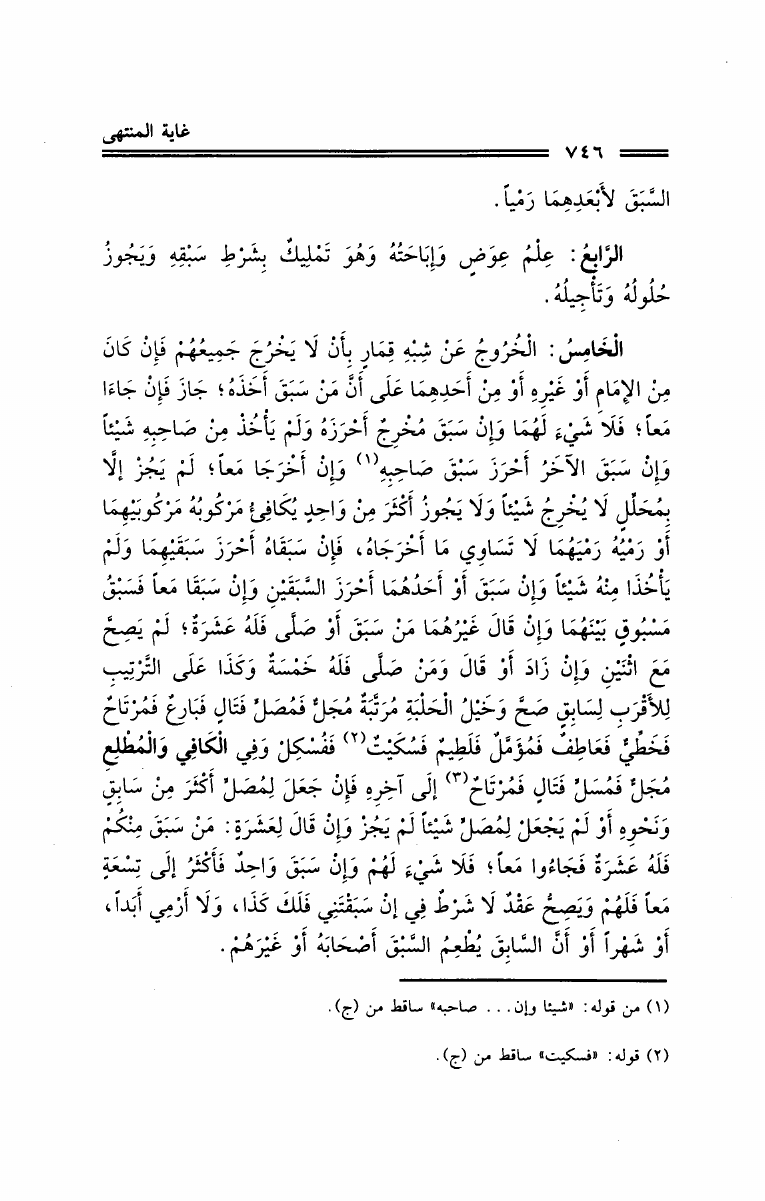 غاية المنتهى
٧٤٦
السَّبَقَ لأَبْعَدِهِمَا رَمْياً.
الرَّابِعُ: عِلْمُ عِوَضٍ وَإِبَاحَتُهُ وَهُوَ تَمْلِيكٌ بِشَرْطِ سَبْقِهِ وَيَجُوزُ
حُلُولُهُ وَتَأْجِيلُهُ.
الْخَامِسُ: الْخُرُوجُ عَنْ شِبْهِ قِمَارٍ بِأَنْ لَا يَخْرُجَ جَمِيعُهُمْ فَإِنْ كَانَ
مِنْ الإِمَامِ أَوْ غَيْرِهِ أَوْ مِنْ أَحَدِهِمَا عَلَى أَنَّ مَنْ سَبَقَ أَخَذَهُ؛ جَازَ فَإِنْ جَاءَا
مَعاً؛ فَلَا شَيْءَ لَهُمَا وَإِنْ سَبَقَ مُخْرِجٌ أَحْرَزَهُ وَلَمْ يَأْخُذْ مِنْ صَاحِبِهِ شَيْئاً
وَإِنْ سَبَقَ الآخَرُ أَحْرَزَ سَبْقَ صَاحِبِهِ(١) وَإِنْ أَخْرَجَا مَعاً؛ لَمْ يَجُزْ إلَّا
بِمُحَلِّلٍ لَا يُخْرِجُ شَيْئاً وَلَا يَجُوزُ أَكْثَرَ مِنْ وَاحِدٍ يُكَافِئُ مَرْكُوبُهُ مَرْكُوبَيْهِمَا
أَوْ رَمْيُهُ رَمْيَهُمَا لَا تَسَاوِي مَا أَخْرَجَاهُ، فَإِنْ سَبَقَاهُ أَحْرَزَ سَبَقَيْهِمَا وَلَمْ
يَأْخُذَا مِنْهُ شَيْئاً وَإِنْ سَبَقَ أَوْ أَحَدُهُمَا أَحْرَزَ السَّبَقَيْنِ وَإِنْ سَبَقَا مَعاً فَسَبْقُ
مَسْبُوقٍ بَيْنَهُمَا وَإِنْ قَالَ غَيْرُهُمَا مَنْ سَبَقَ أَوْ صَلَّى فَلَهُ عَشَرَةٌ؛ لَمْ يَصِحَّ
مَعَ اثْنَيْنِ وَإِنْ زَادَ أَوْ قَالَ وَمَنْ صَلَّى فَلَهُ خَمْسَةٌ وَكَذَا عَلَى التَّرْتِيبِ
لِلأَقْرَبِ لِسَابِقٍ صَحَّ وَخَيْلُ الْحَلْبَةِ مُرَتَّبَةٌ مُجَلٍّ فَمُصَلٍّ فَتَالٍ فَبَارِعٌ فَمُرْتَاحٌ
فَخَطِيٌّ فَعَاطِفٌ فَمُؤَمَّلٌ فَلَطِيمٌ فَسُكَيْتٌ(٢) فَفُسْكِلْ وَفِي الْكَافِي وَالْمُطْلِعِ
مُجَلٍّ فَمُسَلٍّ فَتَالٍ فَمُرْتَاحٌ(٣) إِلَى آخِرِهِ فَإِنْ جَعَلَ لِمُصَلٍّ أَكْثَرَ مِنْ سَابِقٍ
وَنَحْوِهِ أَوْ لَمْ يَجْعَلْ لِمُصَلٍّ شَيْئاً لَمْ يَجُزْ وَإِنْ قَالَ لِعَشَرَةٍ: مَنْ سَبَقَ مِنْكُمْ
فَلَهُ عَشَرَةٌ فَجَاءُوا مَعاً؛ فَلَا شَيْءَ لَهُمْ وَإِنْ سَبَقَ وَاحِدٌ فَأَكْثَرُ إِلَى تِسْعَةٍ
مَعاً فَلَهُمْ وَيَصِحُّ عَقْدٌ لَا شَرْطٌ فِي إنْ سَبَقْتَنِي فَلَكَ كَذَا، وَلَا أَرْمِي أَبَداً،
أَوْ شَهْراً أَوْ أَنَّ السَّابِقَ يُطْعِمُ السَّبْقَ أَصْحَابَهُ أَوْ غَيْرَهُمْ.
(١) من قوله: «شيئا وإن... صاحبه» ساقط من (ج).
(٢) قوله: «فسكيت» ساقط من (ج).